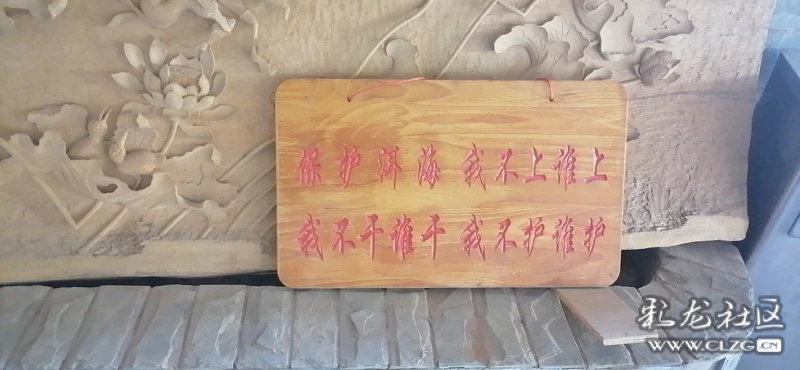 保护洱海 我不上谁上
我不干谁干 我不护谁护
彩龙社区
WWW.CLZG.CN